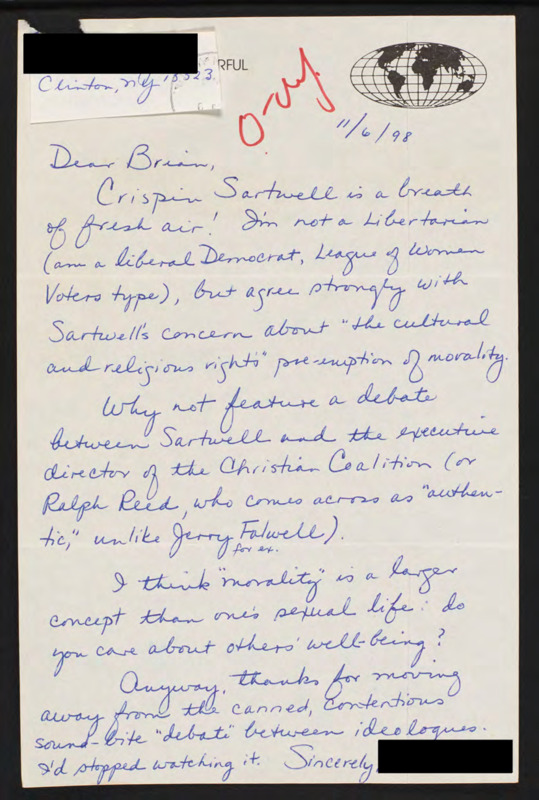 RFUL
Clinton, NY 13323
O-Ay.
11/6/98
Dear Brian,
Crispin Sartwell is a breath
of fresh air! I'm not a Libertarian
(am a liberal Democrat, League of Women
Voters type), but agree strongly with
Sartwell's concern about "the cultural
and religious rights" pre-emption of morality.
Why not feature a debate
between Sartwell and the executive
director of the Christian Coalition (or
Ralph Reed, who comes across as "authen-
tic," unlike Jerry Falwell).
for ex.
I think "morality" is a larger
concept than one's sexual life: do
you care about others' well-being?
Anyway, thanks for moving
away from the canned, contentious
sound-bite "debate" between ideologues.
I'd stopped watching it. Sincerely